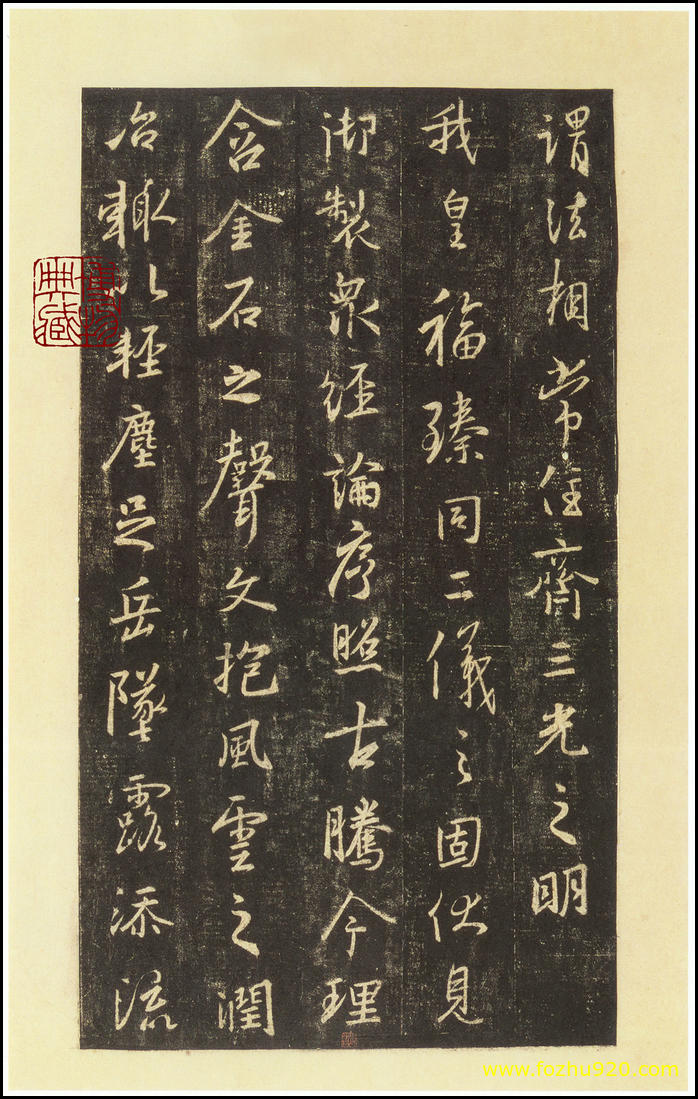 謂法相常住齊三光之明
我皇福臻同二儀之固伏見
御製眾經論序照古騰今理
含金石之聲文抱風雲之潤
治輒以輕塵足岳墜露添流
www.fozhu920.com